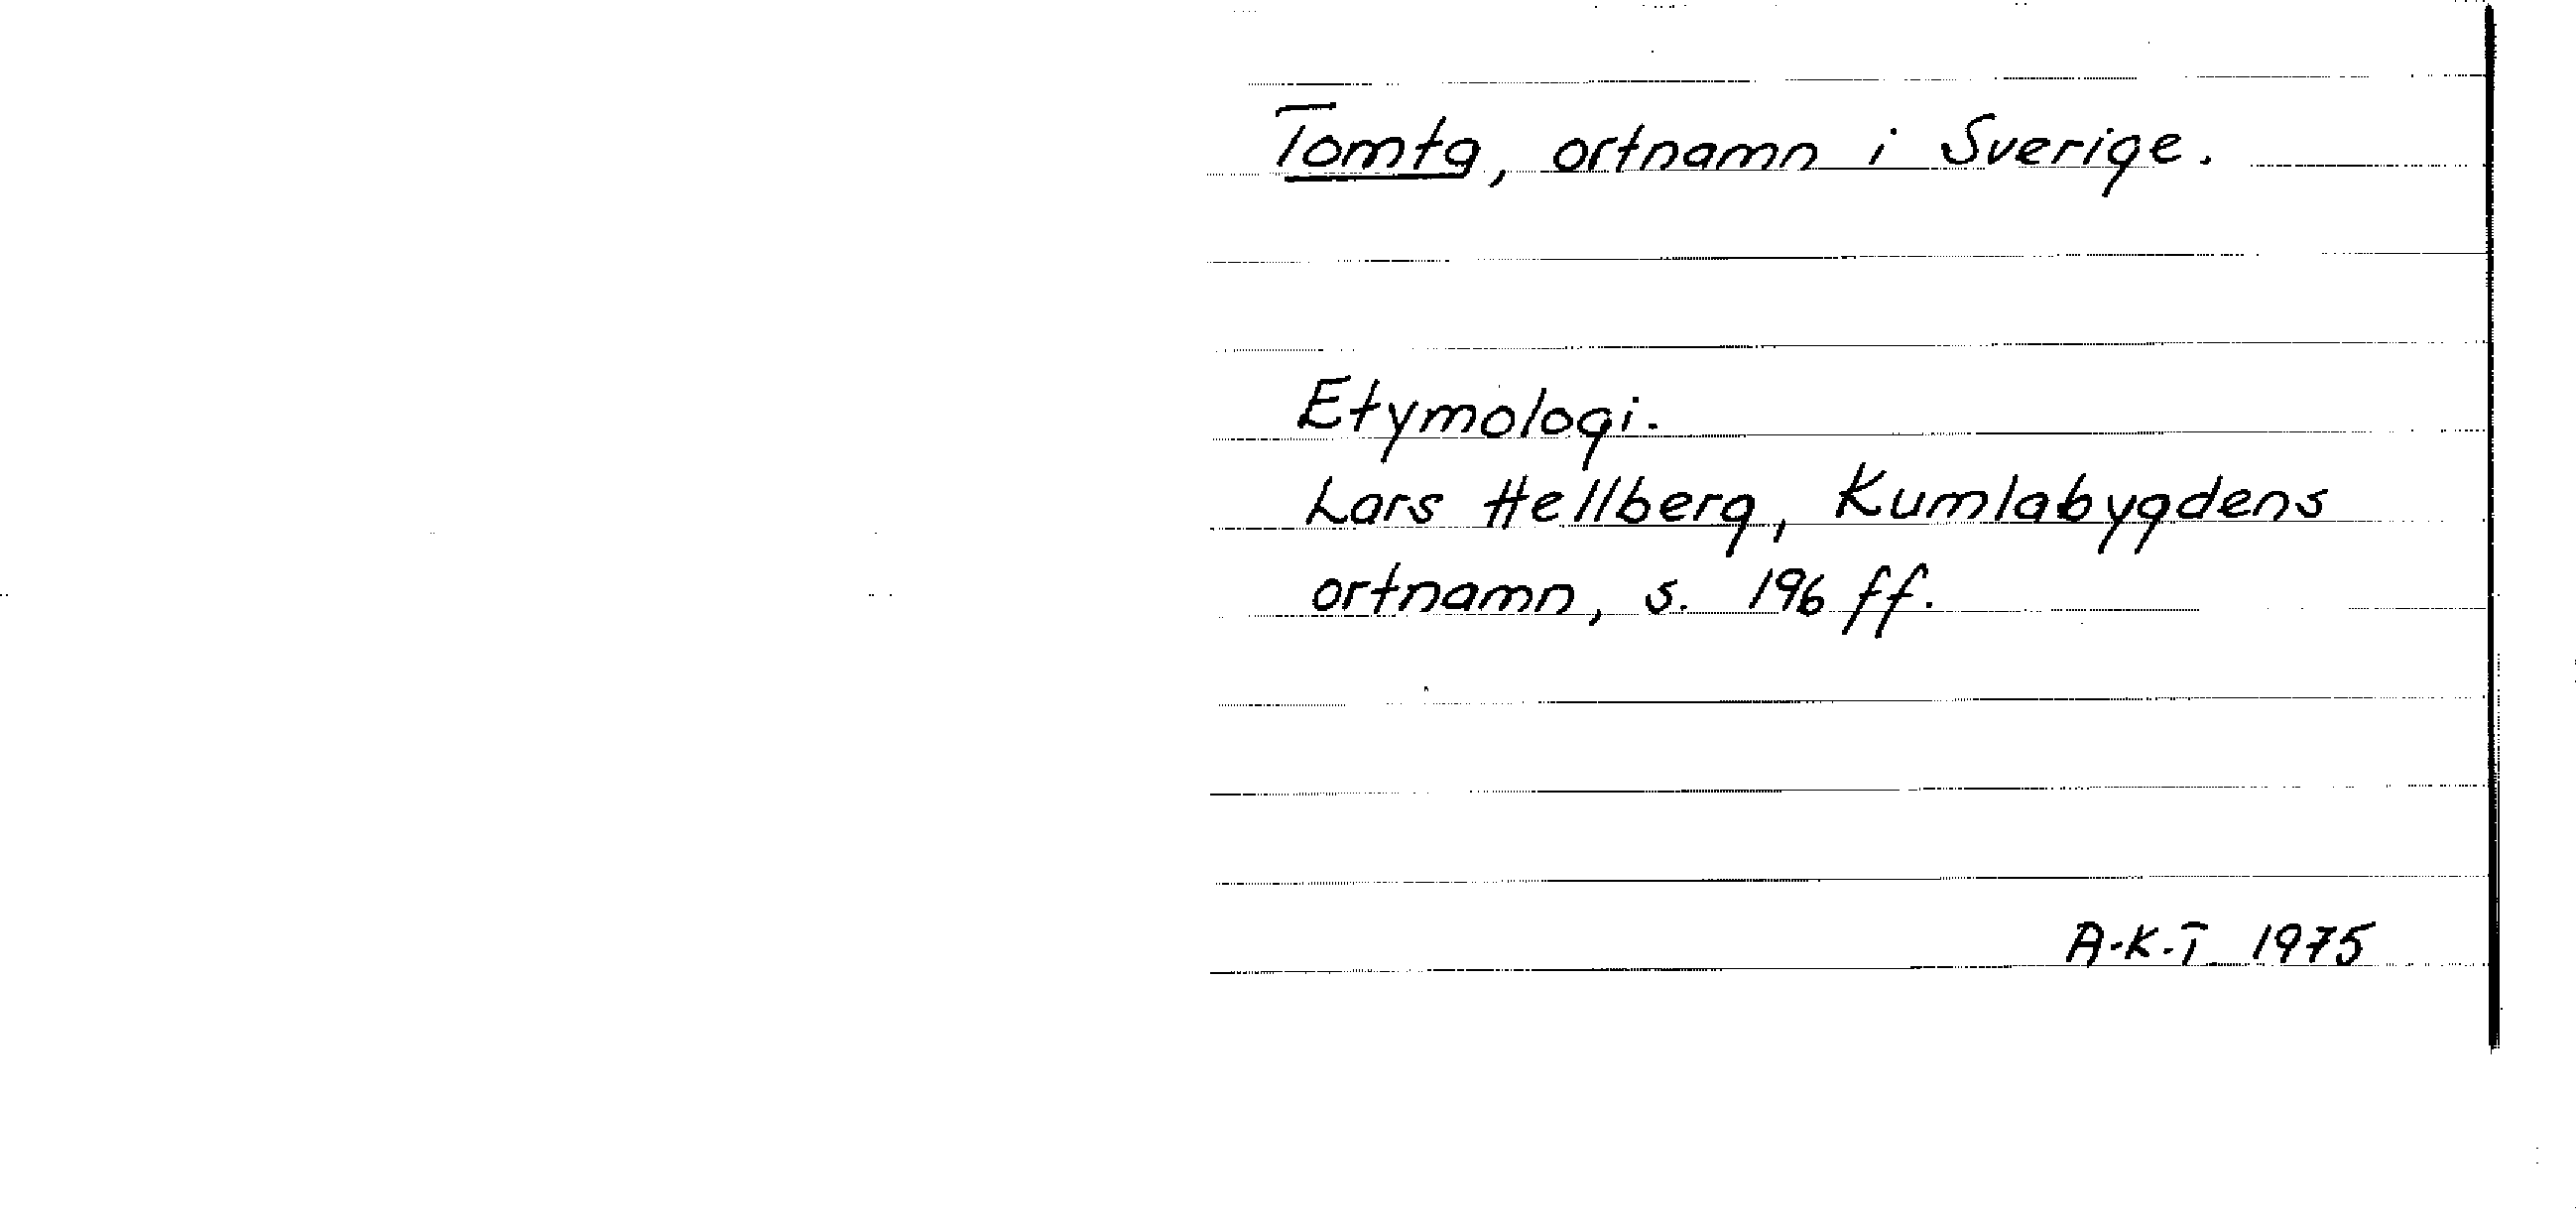 Tomta, ortnamn i Sverige.
Etymologi.
Lars Hellberg, Kumlabygdens
ortnamn, s. 196 ff.
A-K-T 1975